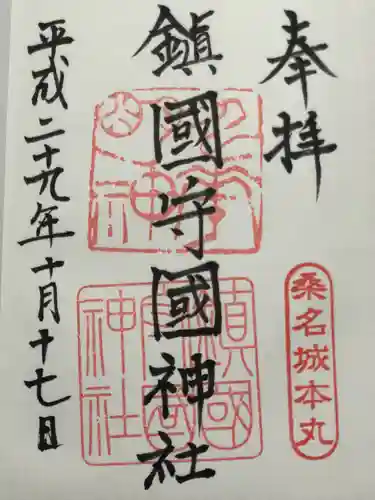 奉拝
桑名城本丸
鎮國守國神社
鎮國守國神社
平成二十九年十月十七日